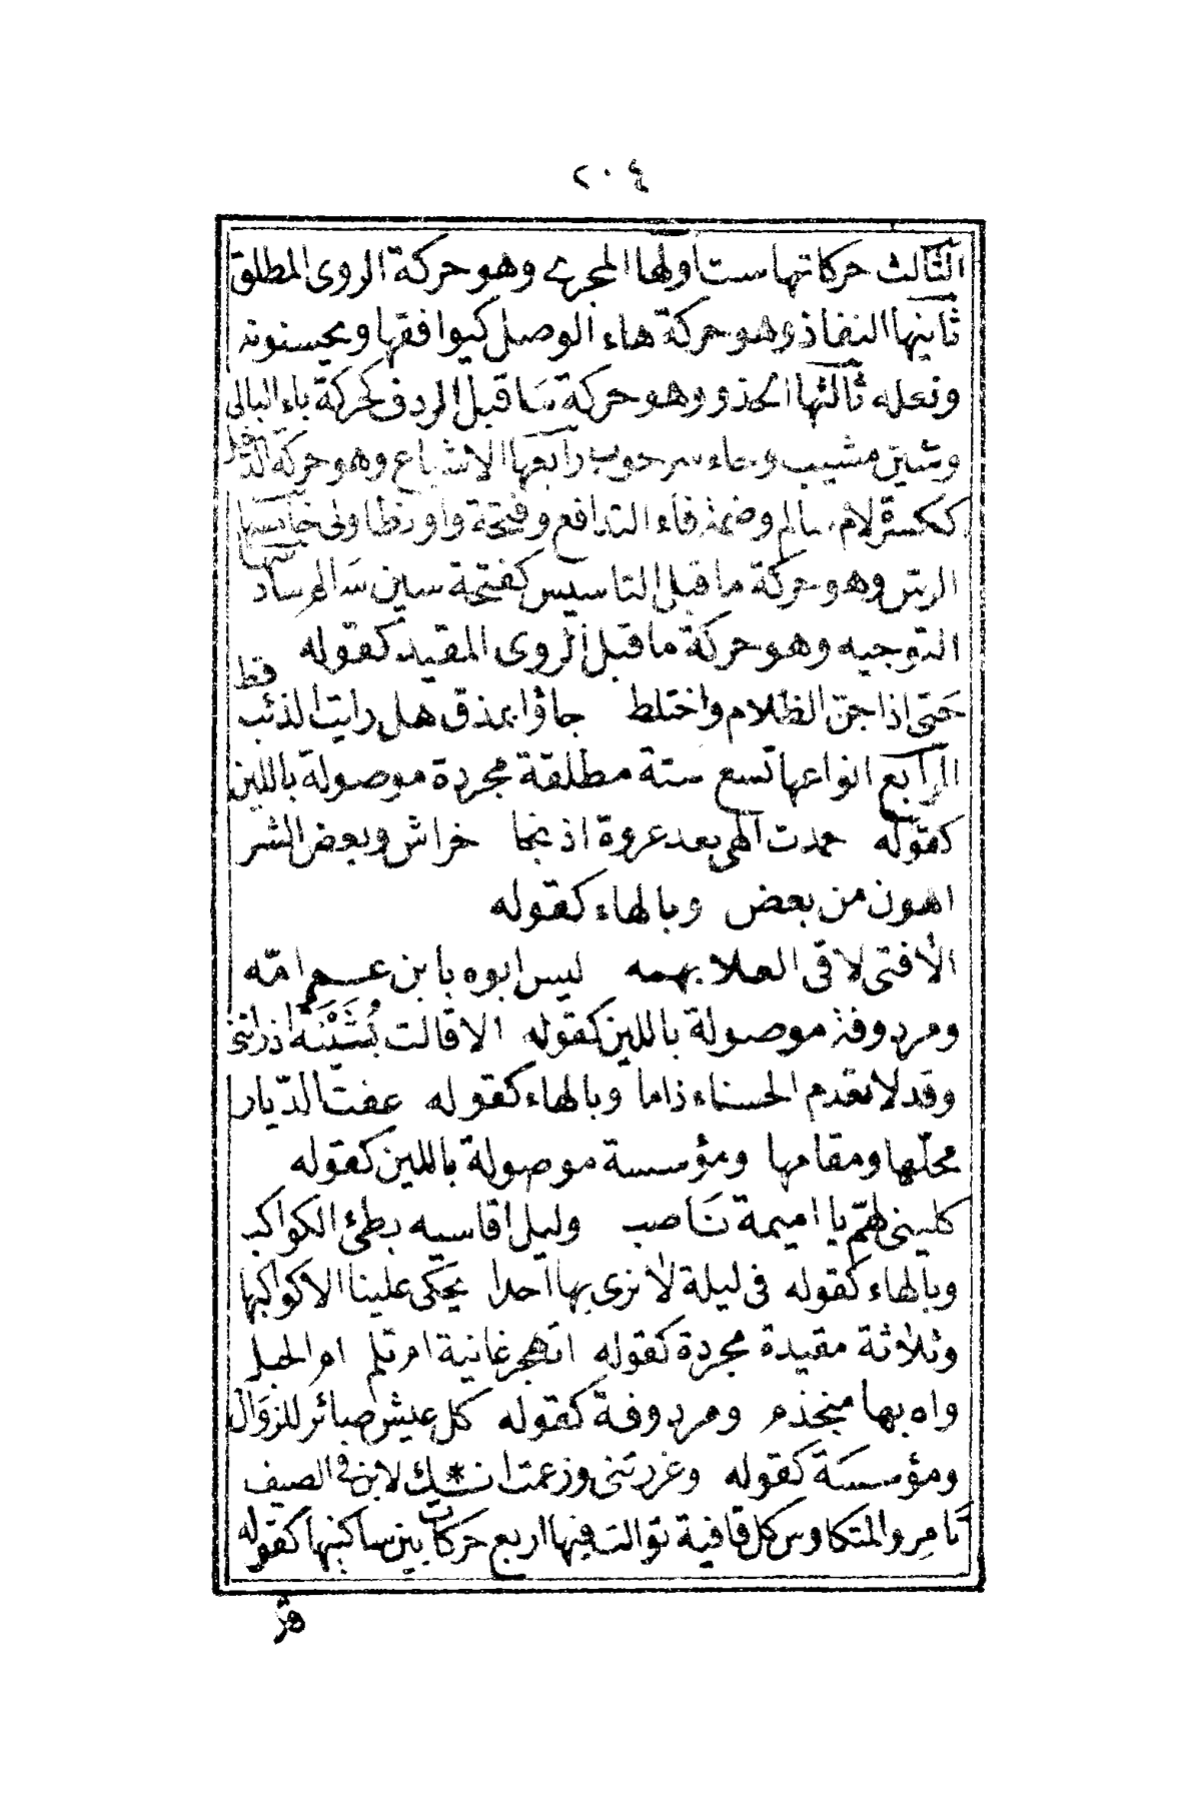 ٢٠٤
الثالث حركاتها ست اولها المجرى وهو حركة الروى المطلق
ثانيها النفاذ وهو حركة هاء الوصل كيوافقها ويحسنونه
ونعله ثالثها الحذو وهو حركة ما قبل الردف كحركة باء البالى
وشين مشيب وحاء سرحوب رابعها الاشباع وهو حركة الدخيل
ككسرة لام سالم وضمة فاء التدافع وفتحة واو تطاولى خامسها
الرس وهو حركة ما قبل التاسيس كفتحة سين سالم سادسها
التوجيه وهو حركة ما قبل الروى المقيد كقوله
حتى اذا جن الظلام واختلط جاؤا بمذق هل رايت الذئب قط
الرابع انواعها تسع ستة مطلقة مجردة موصولة باللين
كقوله حمدت الهى بعد عروة اذ نجا خراش وبعض الشر
اهون من بعض وبالهاء كقوله
الا فتى لاقى العلا بهمه ليس ابوه بابن عم امّه
ومردوفة موصولة باللين كقوله الا قالت بُثَيْنَة اذ راتنى
وقد لا تعدم الحسناء ذاما وبالهاء كقوله عفت الدّيار
محلّها ومقامها ومؤسسة موصولة باللين كقوله
كلينى لهمّ يا اميمة ناصب وليل اقاسيه بطئ الكواكب
وبالهاء كقوله فى ليلة لا نرى بها احدا يحكى علينا الا كواكبها
وثلاثة مقيدة مجردة كقوله اتهجر غانية ام تلم ام الحبل
واه بها منجذم ومردوفة كقوله كل عيش صائر للزوال
ومؤسسة كقوله وغررتنى وزعمت انـ * ـك لابن فى الصيف
تامر والمتكاوس كل قافية توالت فيها اربع حركات بين ساكنيها كقوله